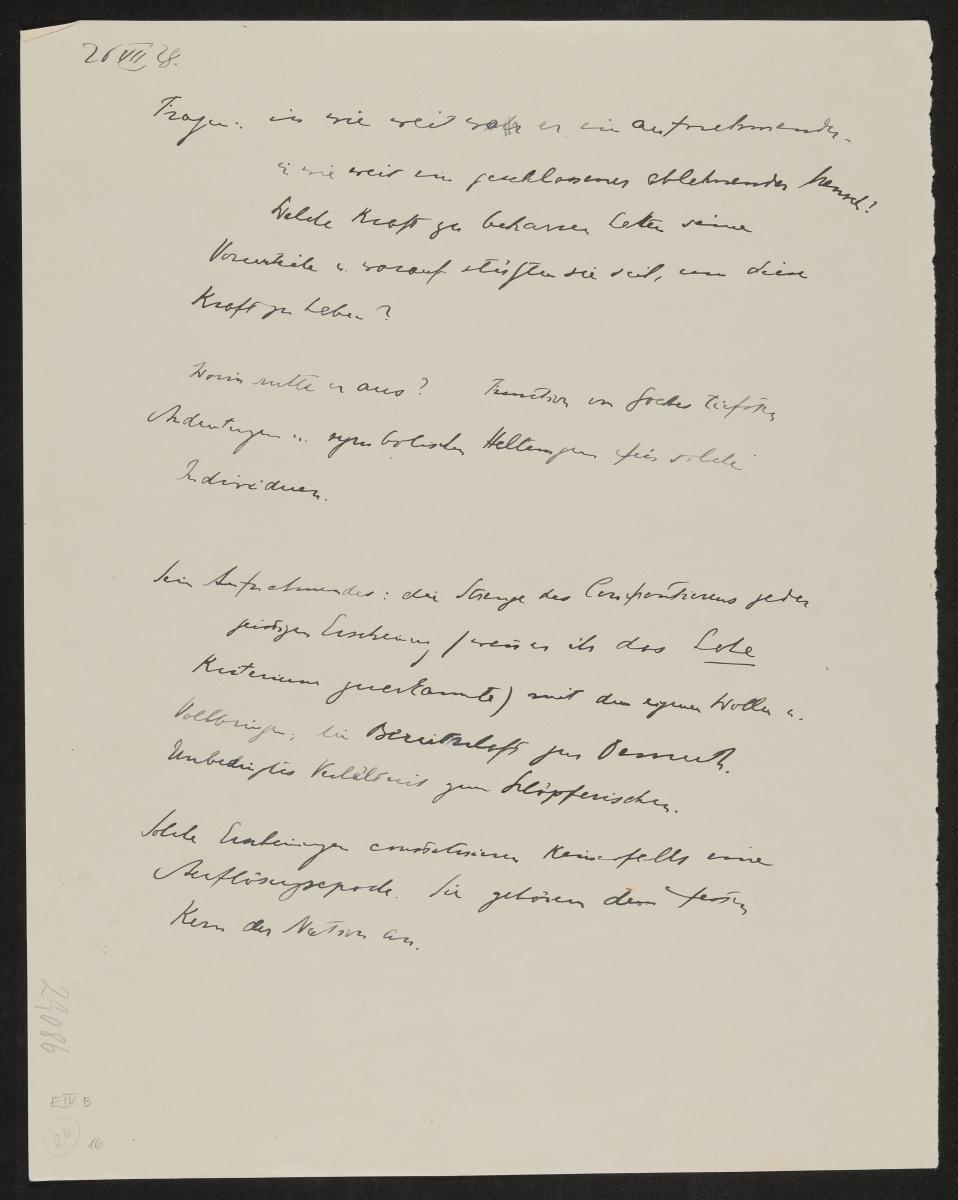 26 VII 28.
Fragen: in wie weit war er ein aufnehmender –
in wie weit ein geschlossener ablehnender Mensch?
Welche Kraft zu beharren hatten seine
Vorurteile u. worauf stützten sie sich, um diese
Kraft zu haben?
Worin ruhte er aus? Function von Goethes tiefsten
Andeutungen u. symbolischen Haltungen für solche
Individuen.
Sein Aufnehmendes: die Strenge des Confrontierens jeder
geistigen Erscheinung (wenn er ihr das Hohe
Kriterium zuerkannte) mit dem eigenen Wollen u.
Vollbringen; die Bereitschaft zur Demuth.
Unbedingtes Verhältnis zum Schöpferischen.
Solche Erscheinungen constituieren Keinesfalls eine
Auflösungsepoche. Sie gehören dem festen
Kern der Nation an.
29,086
E IV B
26
16